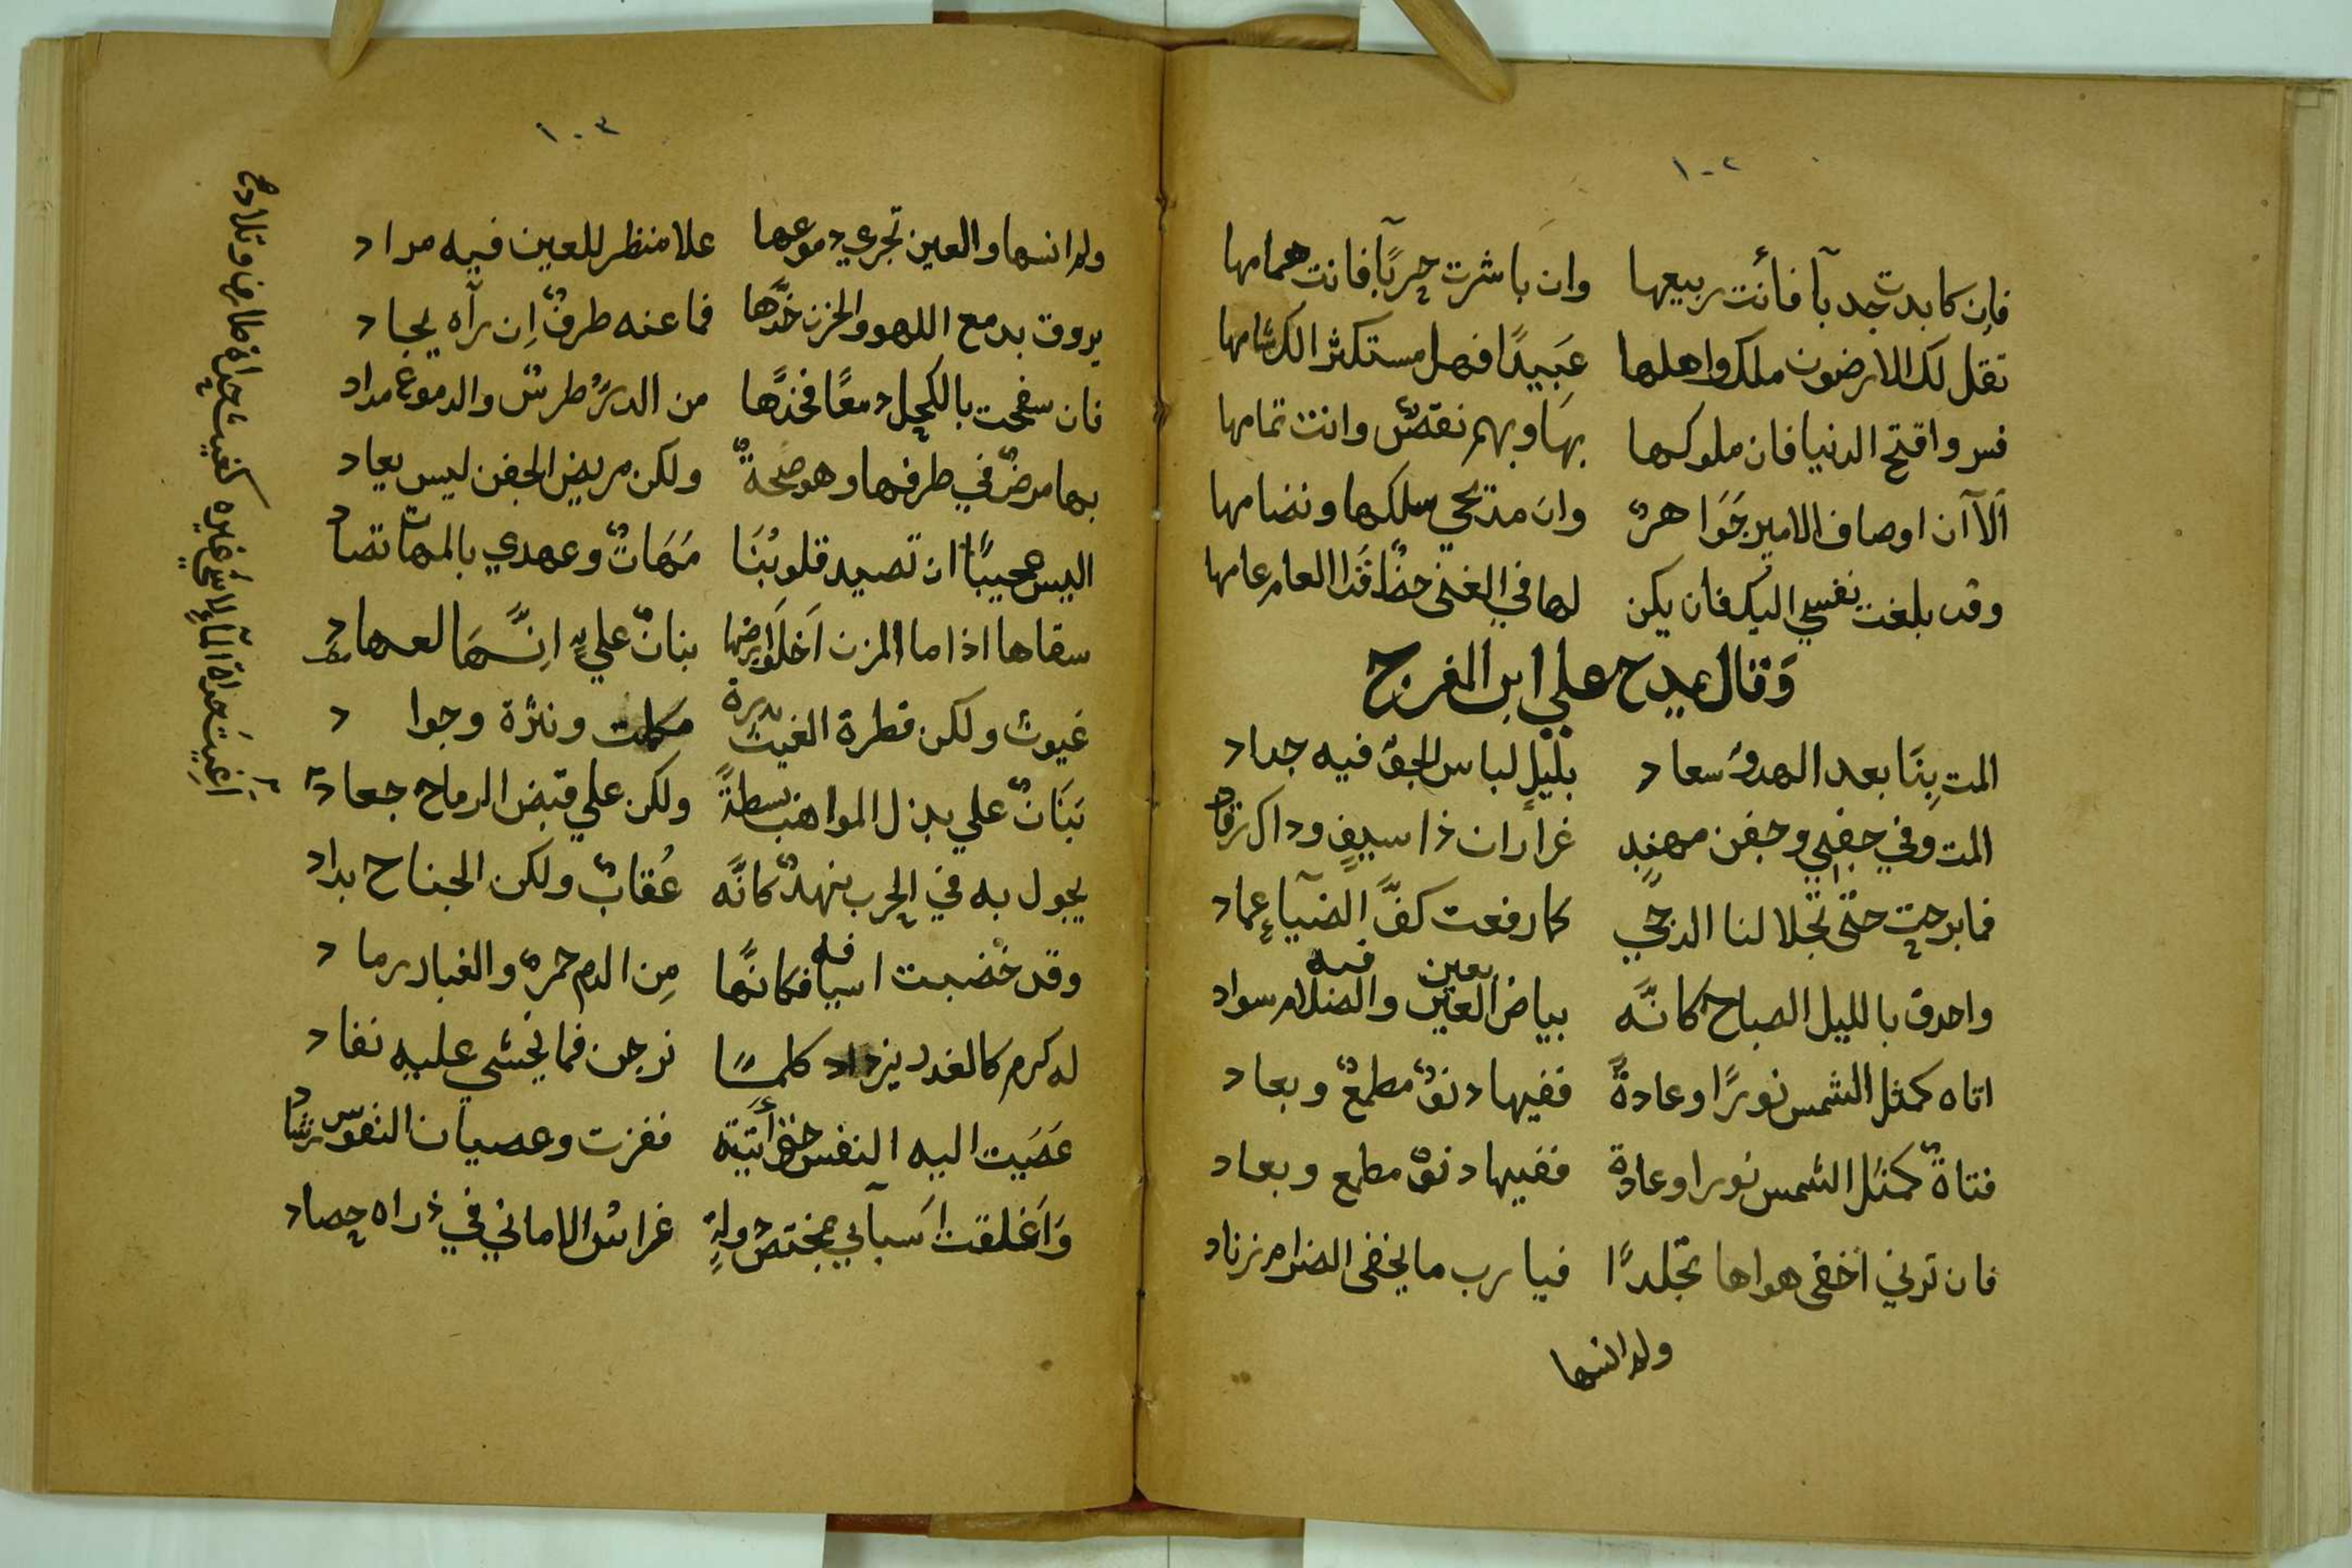 ١٠٢
فاِن كابدت جدبآ فأنت ربيعها وان باشرت حربًآ فانت همامها
تقل لك الارضون ملك واهلها عَبِيدًا فهل مستكثر لك شامها
فسر وافتح الدنيا فان ملوكها بها وبهم نقصٌ وانت تمامها
اَلاَ آن اوصاف الامير جَوَاهرٌ وان مدّحي سلكها ونضامها
وقد بلغت نفسي اليك فان يكن لها في الغنى حضًا فذا العام عامها
وَقال يمدح علي ابن المفرج
المت بِنَا بعد الهدوّ سعاد بليلٍ لباس الجوّ فيه جداد
المت وفي جفني وجفن مهندٍ غراران ذا سيفٍ وداك رقاد
فما برحت حتّى تجلا لنا الدجي كما رفعت كفَّ الضيآءِ عماد
واحدق بالليل الصباح كانَّه بياض العين والضلام سواد
بعين فيه
اتاه كمثل الشمس نورًا وعادةً ففيها دنوٌ مطمعٌ وبعاد
فتاةٌ كمثل الشمس نورا وعادة ففيها دنوٌ مطمع وبعاد
فان ترني اخفى هواها تجلدًا فيا رب ما يخفى الضرام زناد
ولم انسها
١٠٣
ولم انسها والعين تجري دموعها علا منظر للعين فيه مراد
يروق بدمع اللهو والحزن خدَّها فما عنه طرفٌ اِن رآه يحاد
فان سفحت بالكحل دمعًا فخدّها من الدرِّ طرسٌ والدموع مداد
بها مرضٌ في طرفها وهو صحةٌ ولكن مريض الجفن ليس يعاد
اليس عجيبًا ان تصيد قلوبُنَا مَهَاتٌ وعهدي بالمهات تصاد
سقاها اذا ما المزن اَخلَفَ ارضها بنانٌ عليٍ اِنَّهَا لعهاد
غيوث ولكن قطرة الغيث بدرة ونثرة وجواد
بَنَانٌ علي بذل المواهب بسطةً ولكن علي قبض الرماح جعاد
يجول به في الحرب نهدٌ كانَّه عُقابٌ ولكن الجناح بداد
وقد خضبت اسيافه فكانَّها مِن الدم حمرٌ والغبار رماد
له كرم كالغدر يزداد كلمسًا نزحن فما يخشي عليه نفاد
عَصَيت اليه النفس حتى أتيته ففزت وعصيان النفوس رشاد
وَاَعْلقت اَسبآبي بمختصّ دولةٍ غراسُ الاماني في ذراه حصاد